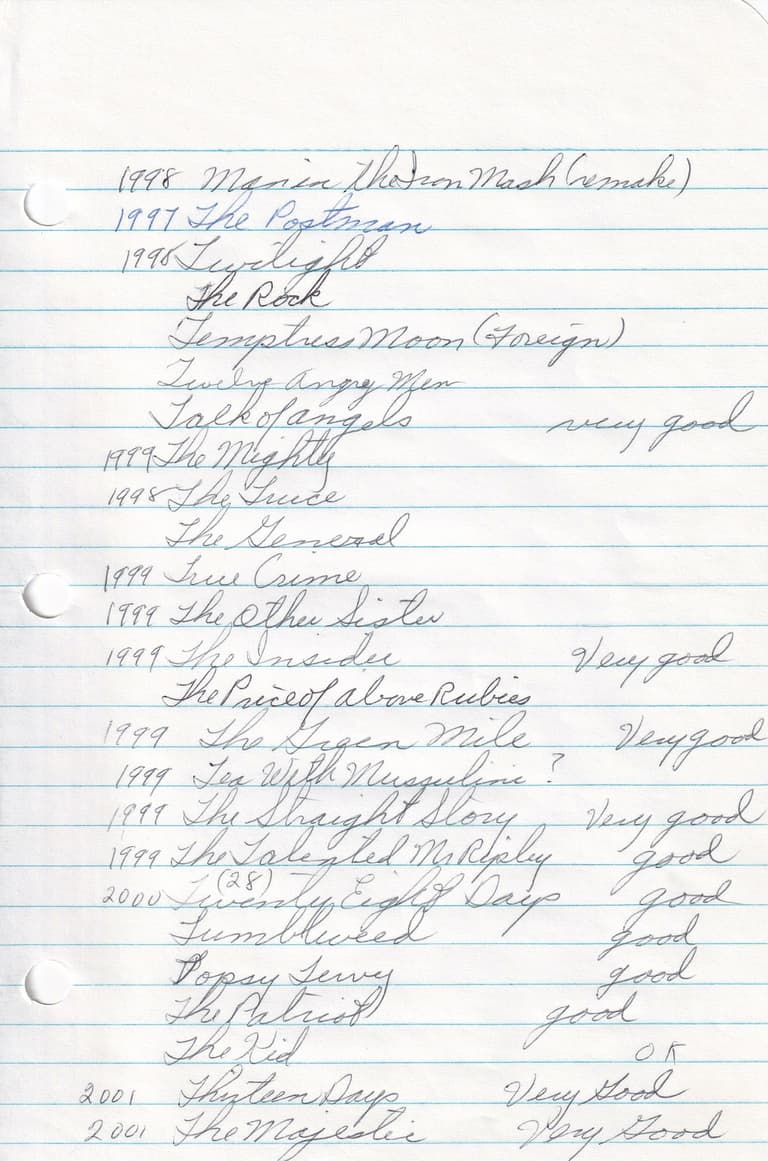 1998 Man in The Iron Mask (remake)
1997 The Postman
1998 Twilight
The Rock
Temptress Moon (Foreign)
Twelve Angry Men
Talk of angels very good
1999 The Mighty
1998 The Truce
The General
1999 True Crime
1999 The Other Sister
1999 The Insider Very good
The Price of above Rubies
1999 The Green Mile Very good
1999 Tea With Mussulini ?
1999 The Straight Story Very good
1999 The Talented Mr Ripley good
2000 Twenty (28) Eight Days good
Tumbleweed good
Topsy Turvy good
The Patriot good
The Kid OK
2001 Thirteen Days Very Good
2001 The Majestic Very Good